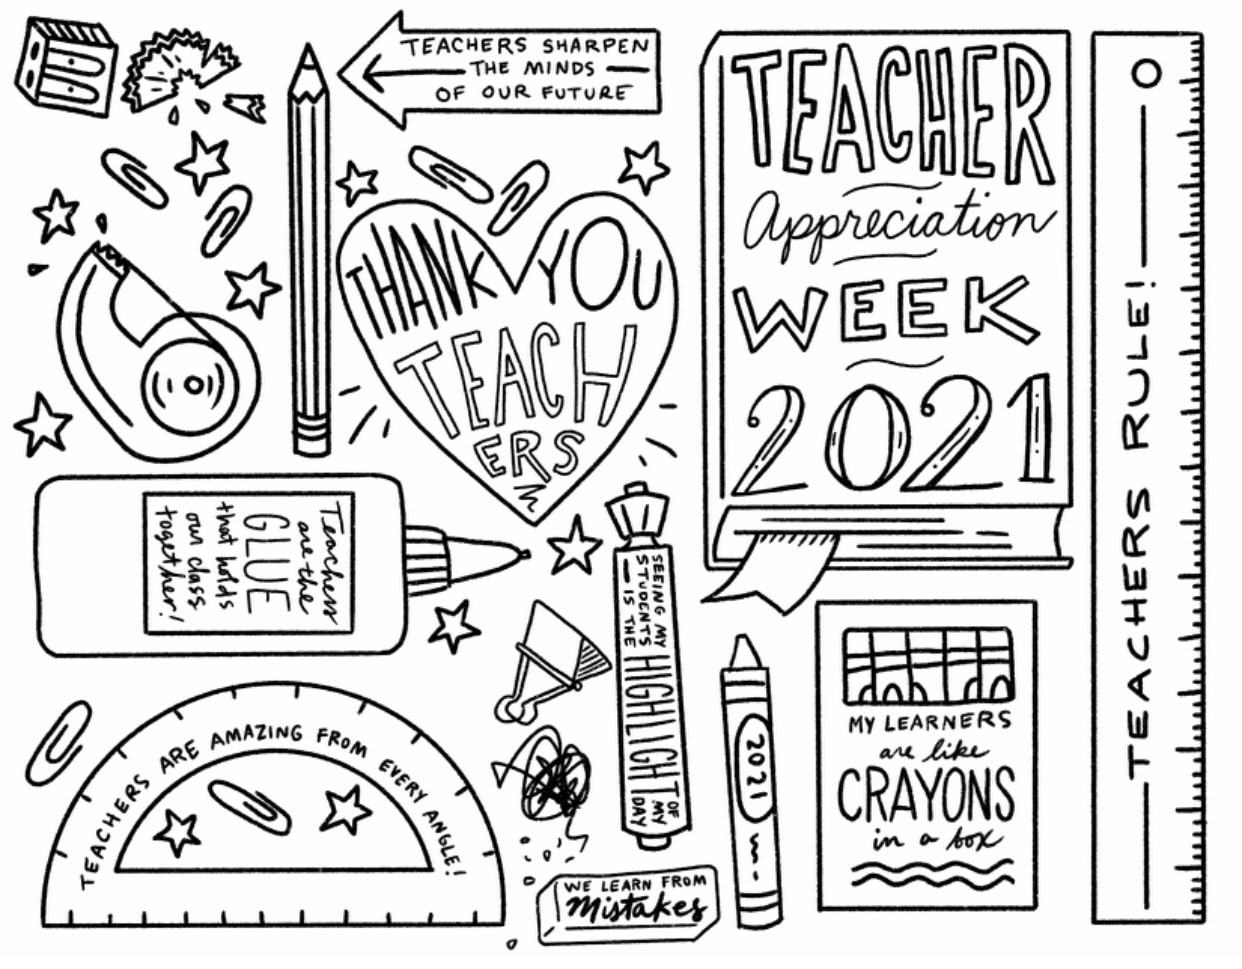 TEACHERS SHARPEN
THE MINDS
OF OUR FUTURE
THANK YOU
TEACH
ERS
TEACHER
Appreciation
WEEK
2021
TEACHERS RULE!
Teachers
are the
GLUE
that holds
our class
together!
SEEING MY
STUDENTS
IS THE
HIGHLIGHT
OF
MY
DAY
TEACHERS ARE AMAZING FROM EVERY ANGLE!
2021
MY LEARNERS
are like
CRAYONS
in a box
WE LEARN FROM
Mistakes